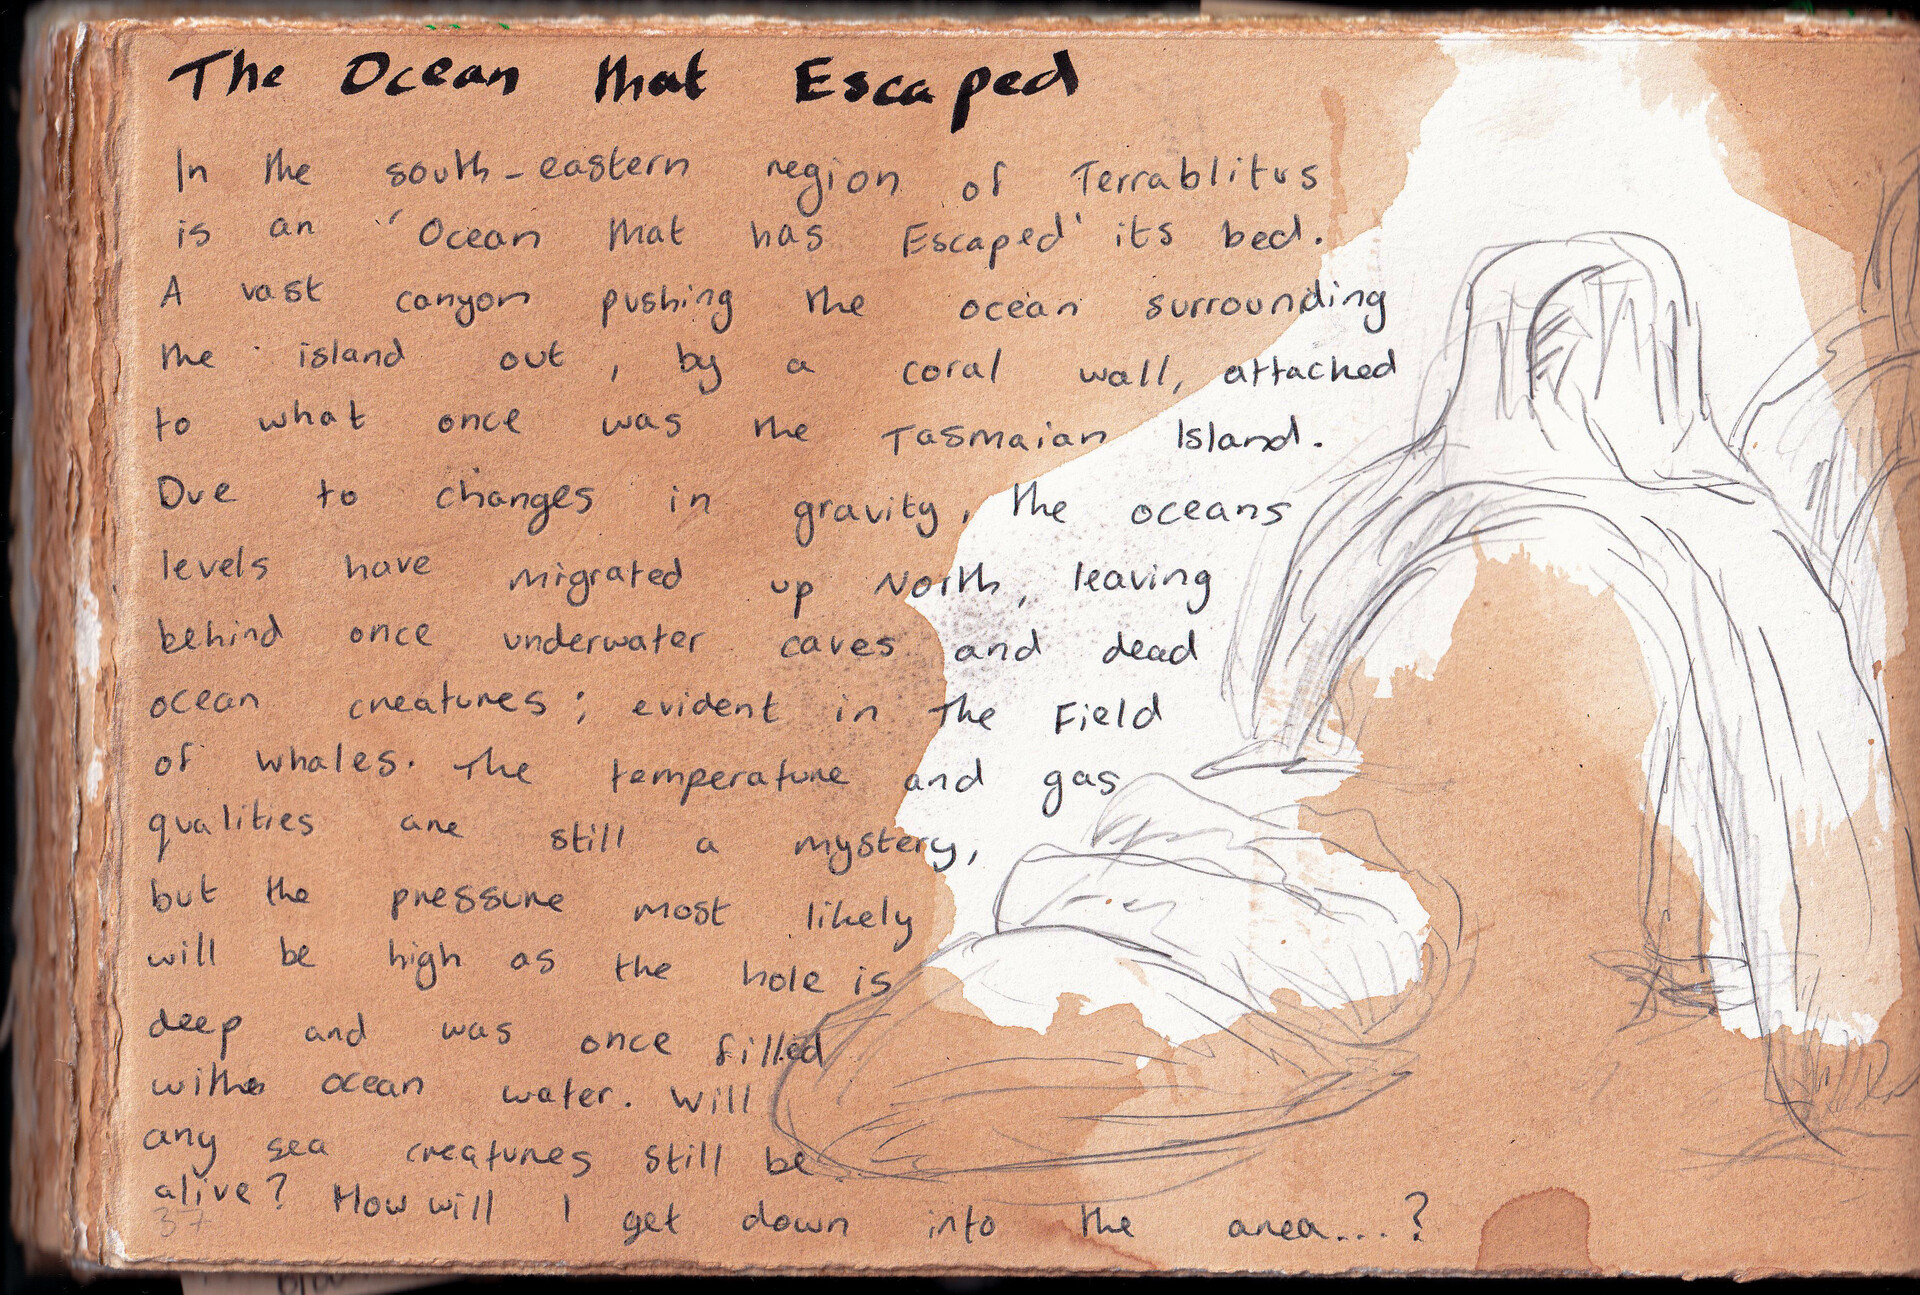 The Ocean that Escaped
In the south-eastern region of Terrablitus
is an 'Ocean that has Escaped' its bed.
A vast canyon pushing the ocean surrounding
the island out, by a coral wall, attached
to what once was the Tasmaian Island.
Due to changes in gravity, the oceans
levels have migrated up North, leaving
behind once underwater caves and dead
ocean creatures; evident in The Field
of whales. The temperature and gas
qualities are still a mystery,
but the pressure most likely
will be high as the hole is
deep and was once filled
with ocean water. Will
any sea creatures still be
alive? How will I get down into the area....?
37